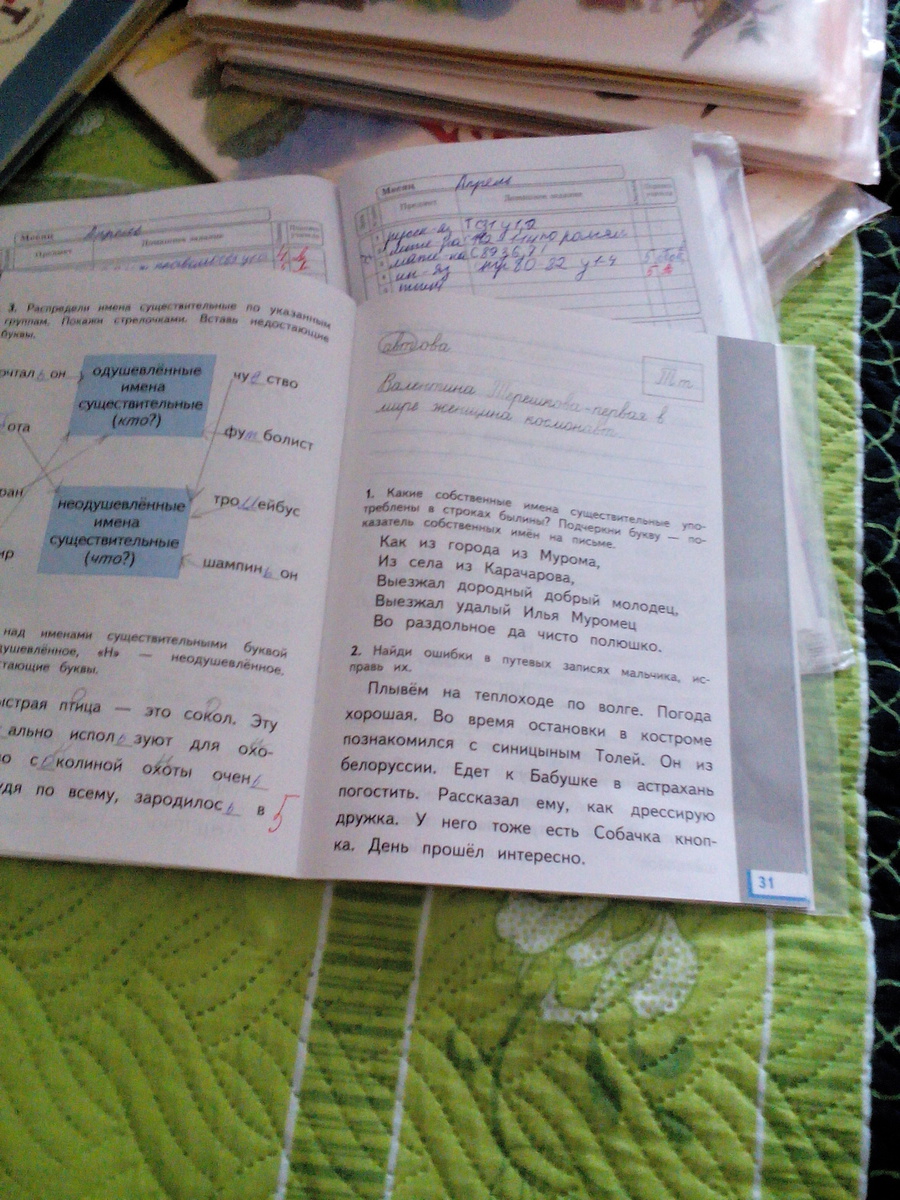 Месяц Апрель
Предмет Домашнее задание
Месяц Апрель
Предмет Домашнее задание
русск-яз
ин-яз
3. Распредели имена существительные по указанным
группам. Покажи стрелочками. Вставь недостающие
буквы.
очтальон
ота
ран
ир
одушевлённые
имена
существительные
(кто?)
неодушевлённые
имена
существительные
(что?)
чу ство
футболист
тро ейбус
шампиньон
над именами существительными буквой
душевлённое, «Н» — неодушевлённое.
тающие буквы.
ыстрая птица — это сокол. Эту
ально используют для охо-
но соколиной охоты очень
удя по всему, зародилось в
5
Валентина Терешкова-первая в
мире женщина космонавт.
1. Какие собственные имена существительные упо-
треблены в строках былины? Подчеркни букву — по-
казатель собственных имён на письме.
Как из города из Мурома,
Из села из Карачарова,
Выезжал дородный добрый молодец,
Выезжал удалый Илья Муромец
Во раздольное да чисто полюшко.
2. Найди ошибки в путевых записях мальчика, ис-
правь их.
Плывём на теплоходе по волге. Погода
хорошая. Во время остановки в костроме
познакомился с синицыным Толей. Он из
белоруссии. Едет к Бабушке в астрахань
погостить. Рассказал ему, как дрессирую
дружка. У него тоже есть Собачка кноп-
ка. День прошёл интересно.
31